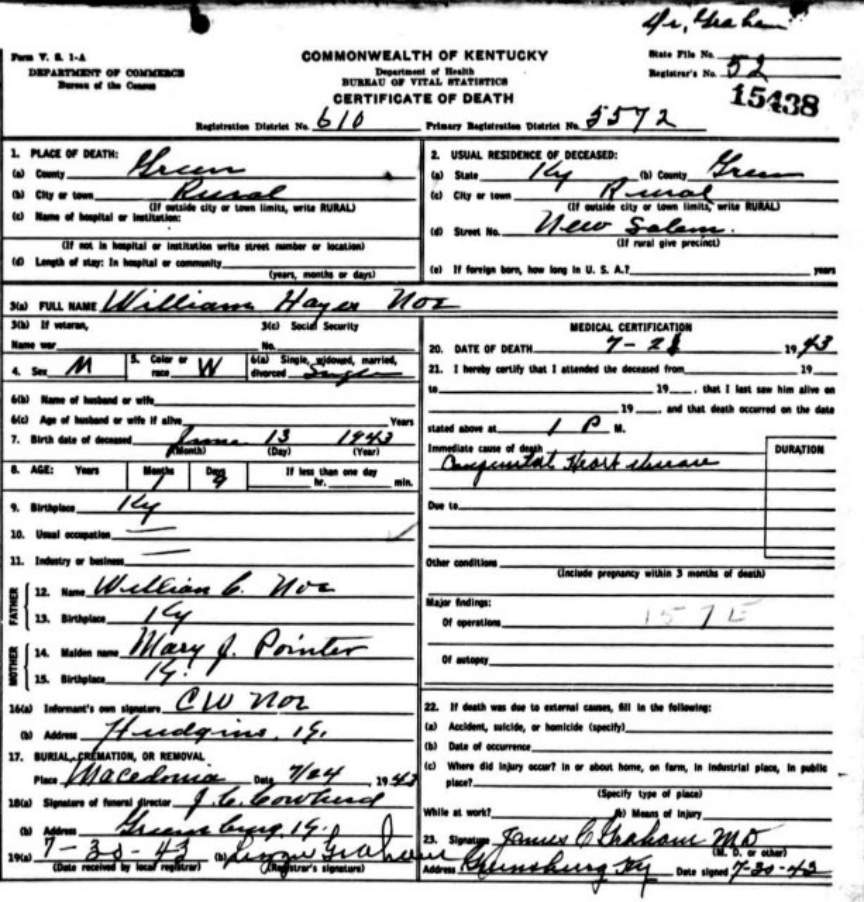 Dr. Graham
Form V. S. 1-A
DEPARTMENT OF COMMERCE
Bureau of the Census
COMMONWEALTH OF KENTUCKY
Department of Health
BUREAU OF VITAL STATISTICS
CERTIFICATE OF DEATH
State File No.
Registrar's No. 52
15438
Registration District No. 610 Primary Registration District No. 5572
1. PLACE OF DEATH:
(a) County Green
(b) City or town Rural
(If outside city or town limits, write RURAL)
(c) Name of hospital or institution:
(If not in hospital or institution write street number or location)
(d) Length of stay: In hospital or community
(years, months or days)
2. USUAL RESIDENCE OF DECEASED:
(a) State Ky (b) County Green
(c) City or town Rural
(If outside city or town limits, write RURAL)
(d) Street No. New Salem.
(If rural give precinct)
(e) If foreign born, how long in U. S. A.? years
3(a) FULL NAME William Hayes Noe
3(b) If veteran, 3(c) Social Security
Name war No.
4. Sex M 5. Color or race W 6(a) Single, widowed, married, divorced Single
6(b) Name of husband or wife
6(c) Age of husband or wife if alive Years
7. Birth date of deceased June 13 1943
(Month) (Day) (Year)
8. AGE: Years Months 1 Days 9 If less than one day
hr. min.
9. Birthplace Ky
10. Usual occupation —
11. Industry or business —
FATHER
12. Name William C. Noe
13. Birthplace Ky
MOTHER
14. Maiden name Mary J. Pointer
15. Birthplace Ky.
16(a) Informant's own signature C W Noe
(b) Address Hudgins, Ky.
17. BURIAL, CREMATION, OR REMOVAL
Place Macedonia Date 7/24 1943
18(a) Signature of funeral director J. C. Cowherd
(b) Address Greensburg, Ky.
19(a) 7-30-43 (b) Lizzie Graham
(Date received by local registrar) (Registrar's signature)
MEDICAL CERTIFICATION
20. DATE OF DEATH 7-2 1943
21. I hereby certify that I attended the deceased from 19
to 19, that I last saw him alive on
19, and that death occurred on the date
stated above at 1 P M.
Immediate cause of death
Congenital Heart disease
DURATION
Due to
Other conditions
(Include pregnancy within 3 months of death)
Major findings:
Of operations 157E
Of autopsy
22. If death was due to external causes, fill in the following:
(a) Accident, suicide, or homicide (specify)
(b) Date of occurrence
(c) Where did injury occur? In or about home, on farm, in industrial place, in public
place?
(Specify type of place)
While at work? (e) Means of injury
23. Signature James C Graham MD
(M. D. or other)
Address Greensburg Ky Date signed 7-30-43